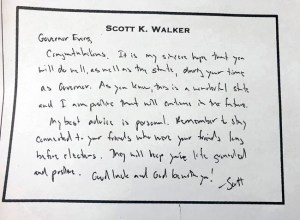 SCOTT K. WALKER
Governor Evers,
Congratulations. It is my sincere hope that you
will do well, as well as the state, during your time
as Governor. As you know, this is a wonderful state
and I am positive that will continue in the future.
My best advice is personal. Remember to stay
connected to your friends who were your friends long
before elections. They will help your life grounded
and positive. Good luck and God be with you!
Scott